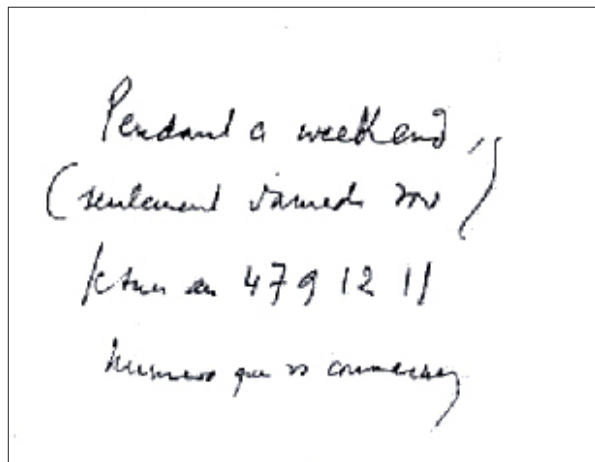 Pendant ce weekend,
(seulement samedi soir)
je suis au 479 12 11
numero que vs connaissez